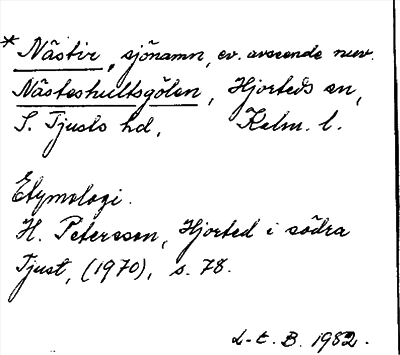 * Nästir, sjönamn, ev. avseende nuv.
Nästeshultsgölen, Hjorteds sn,
S. Tjusts hd, Kalm. l.
Etymologi.
H. Petersson, Hjorted i södra
Tjust, (1970), s. 78.
L-E. B. 1982.